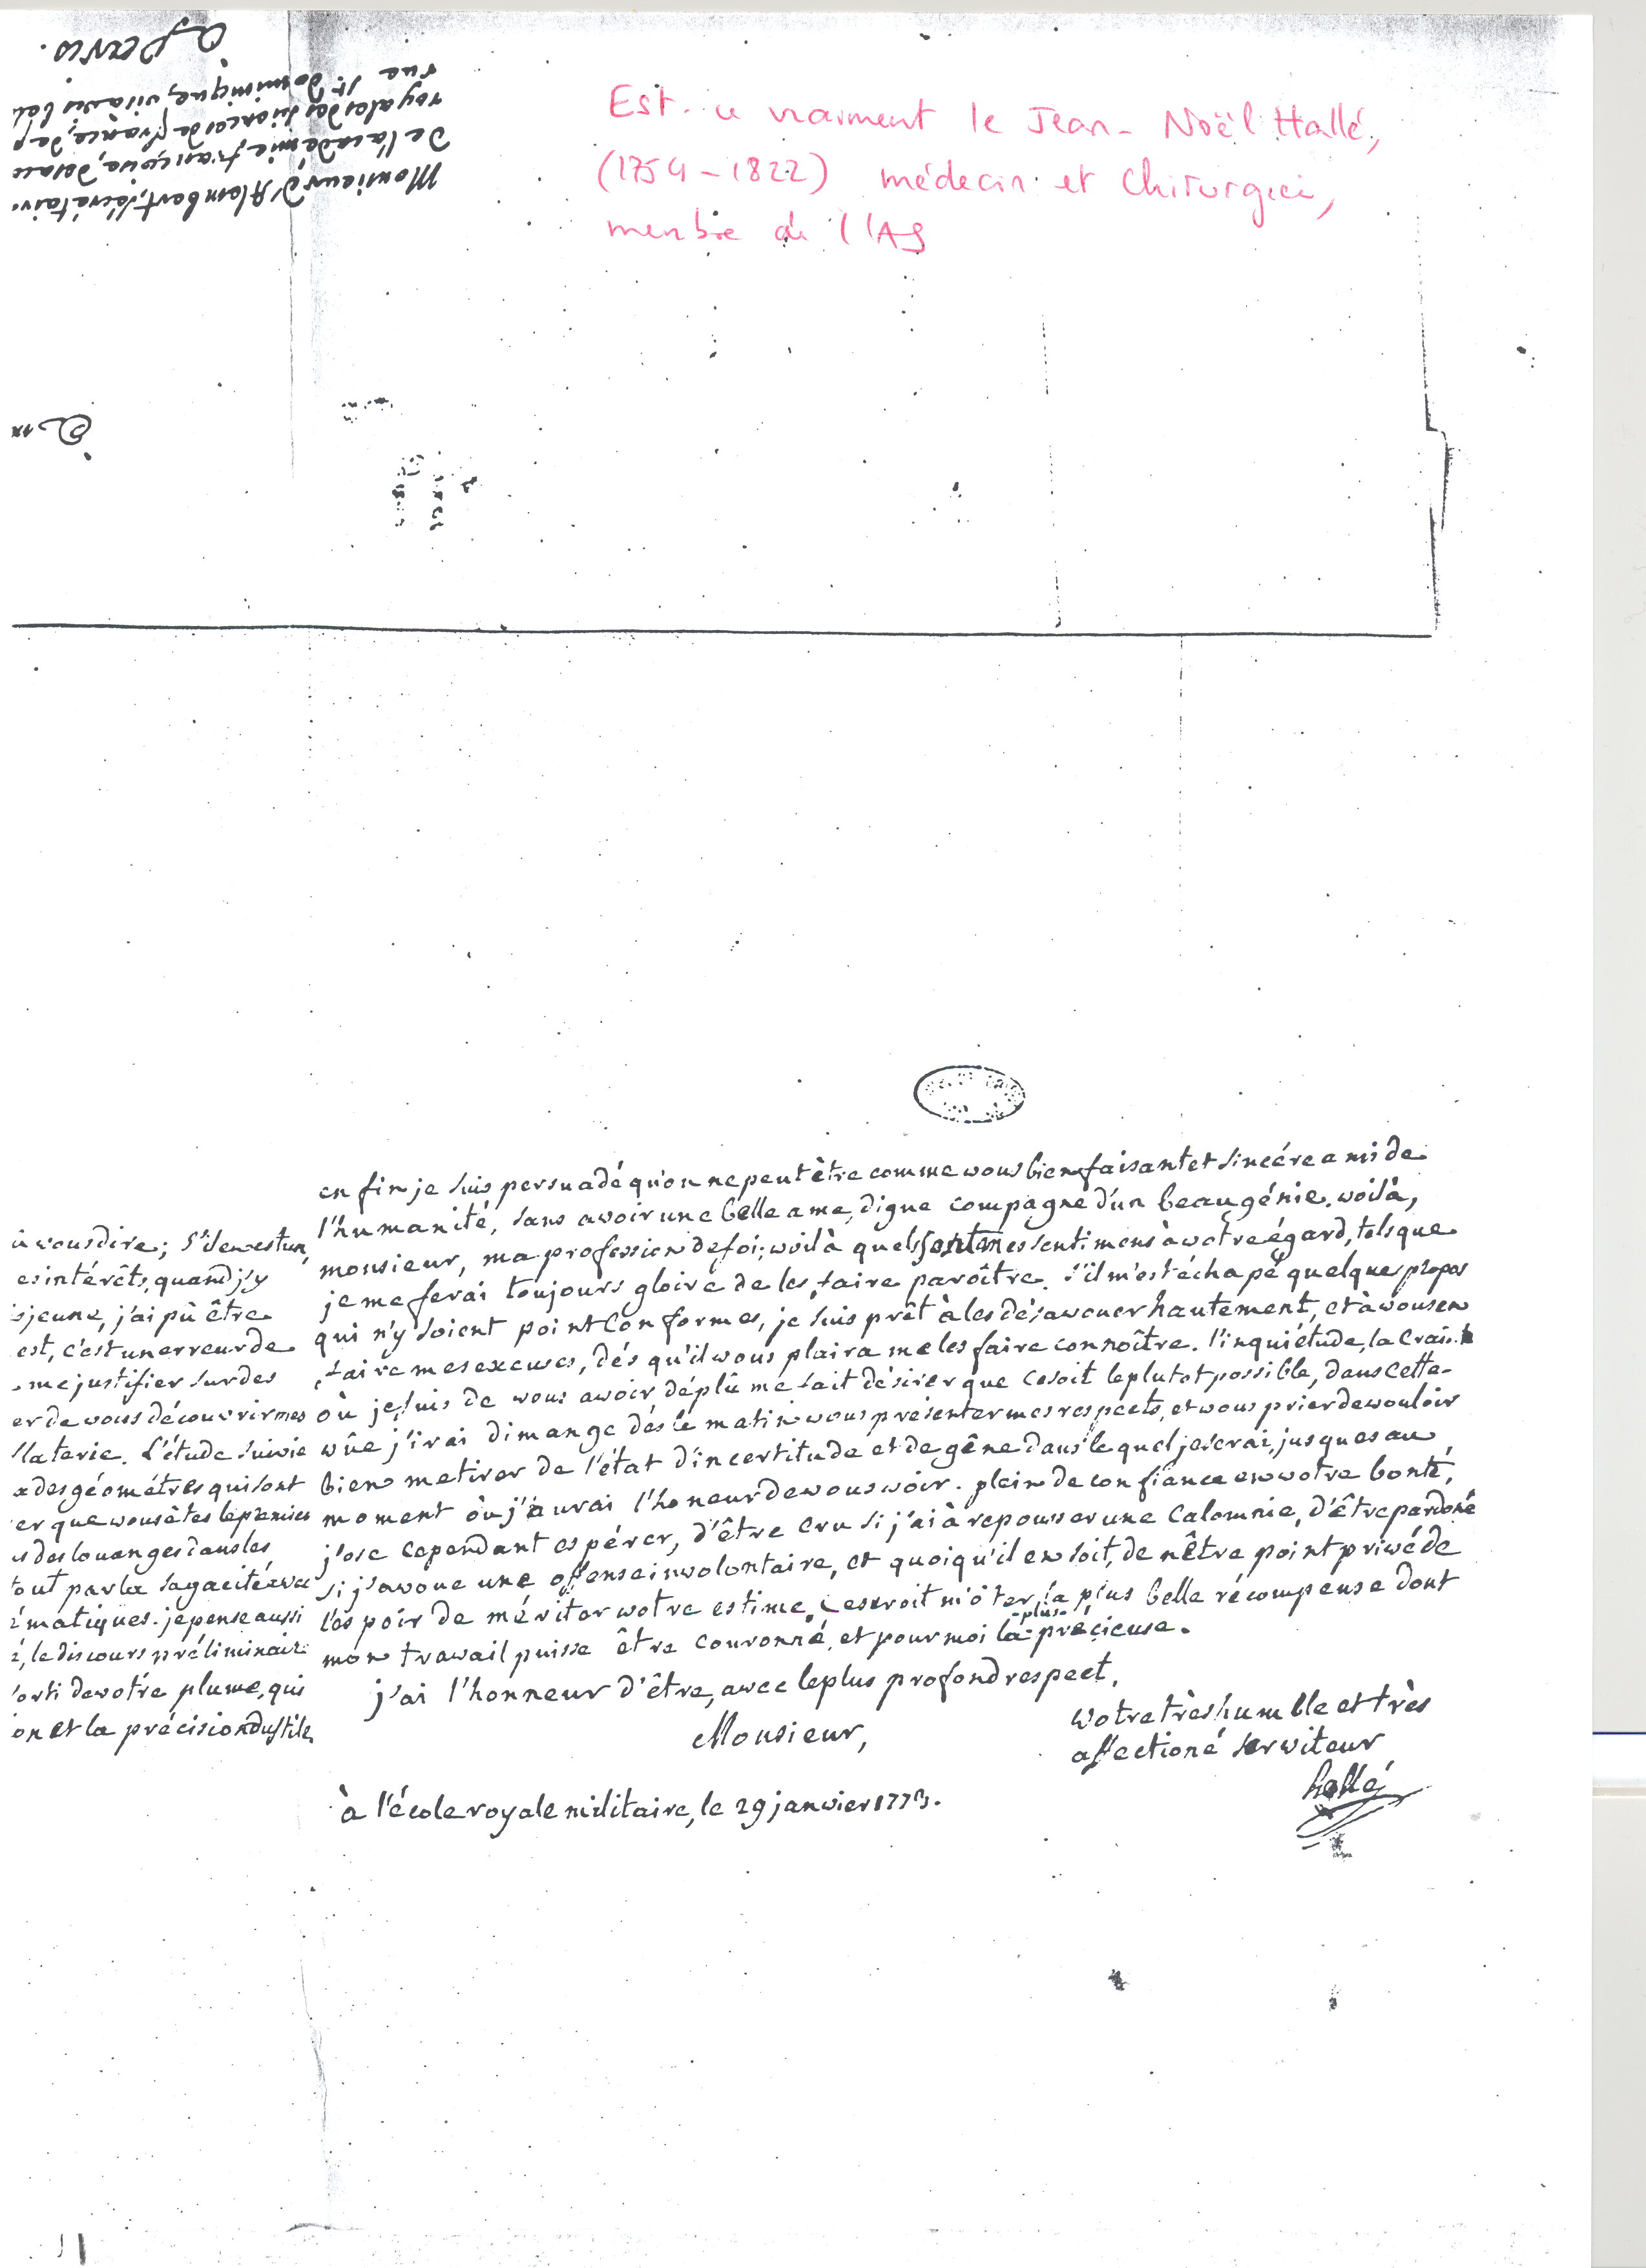 Est-ce vraiment le Jean-Noël Hallé,
(1754-1822) médecin et chirurgien,
membre de l'AS
Monsieur d'Alembert, sécrétair.
de l'académie françoise, de l'ac
royales des siences de france, de p
rue St. dominique, vis a vis bel
à paris.
à m
à vous dire; s'il en est un
es intérêts, quand j'y
s jeune, j'ai pû être
est, c'est un erreur de
me justifier sur des
er de vous découvrir mes
flaterie. L'étude suivie
x des géométres qui sont
er que vous êtes le premier
s des louanges dans les
tout par la sagacité avec
ématiques. je pense aussi
é, le discours préliminaire
sorti de votre plume, qui
on et la précision du stile,
en fin je suis persuadé qu'on ne peut être comme vous bienfaisant et sincére ami de
l'humanité, sans avoir une belle ame, digne compagne d'un beau génie. voilà,
monsieur, ma profession de foi; voilà quels sont mes sentimens à votre égard, tels que
je me ferai toujours gloire de les faire paroître. s'il m'est échapé quelques propos
qui n'y soient point conformes, je suis prêt à les désavouer hautement, et à vous en
faire mes excuses, dés qu'il vous plaira me les faire connoître. l'inquiétude, la crainte
où je suis de vous avoir déplû me fait désirer que ce soit le plutot possible, dans cette
vûe j'irai dimange dés le matin vous présenter mes respects, et vous prier de vouloir
bien me tirer de l'état d'incertitude et de gêne dans le quel je serai, jusques au
moment où j'aurai l'honeur de vous voir. plein de confiance en votre bonté,
j'ose cependant espérer, d'être cru si j'ai à repousser une calomnie, d'être pardoné
si j'avoue une offense involontaire, et quoiqu'il en soit, de n'être point privé de
l'espoir de mériter votre estime, ce seroit m'ôter la plus belle récompense dont
mon travail puisse être couronné, et pour moi la plus précieuse.
j'ai l'honneur d'être, avec le plus profond respect,
Monsieur,
votre très humble et très
affectioné serviteur
hallé
à l'école royale militaire, le 29 janvier 1773.